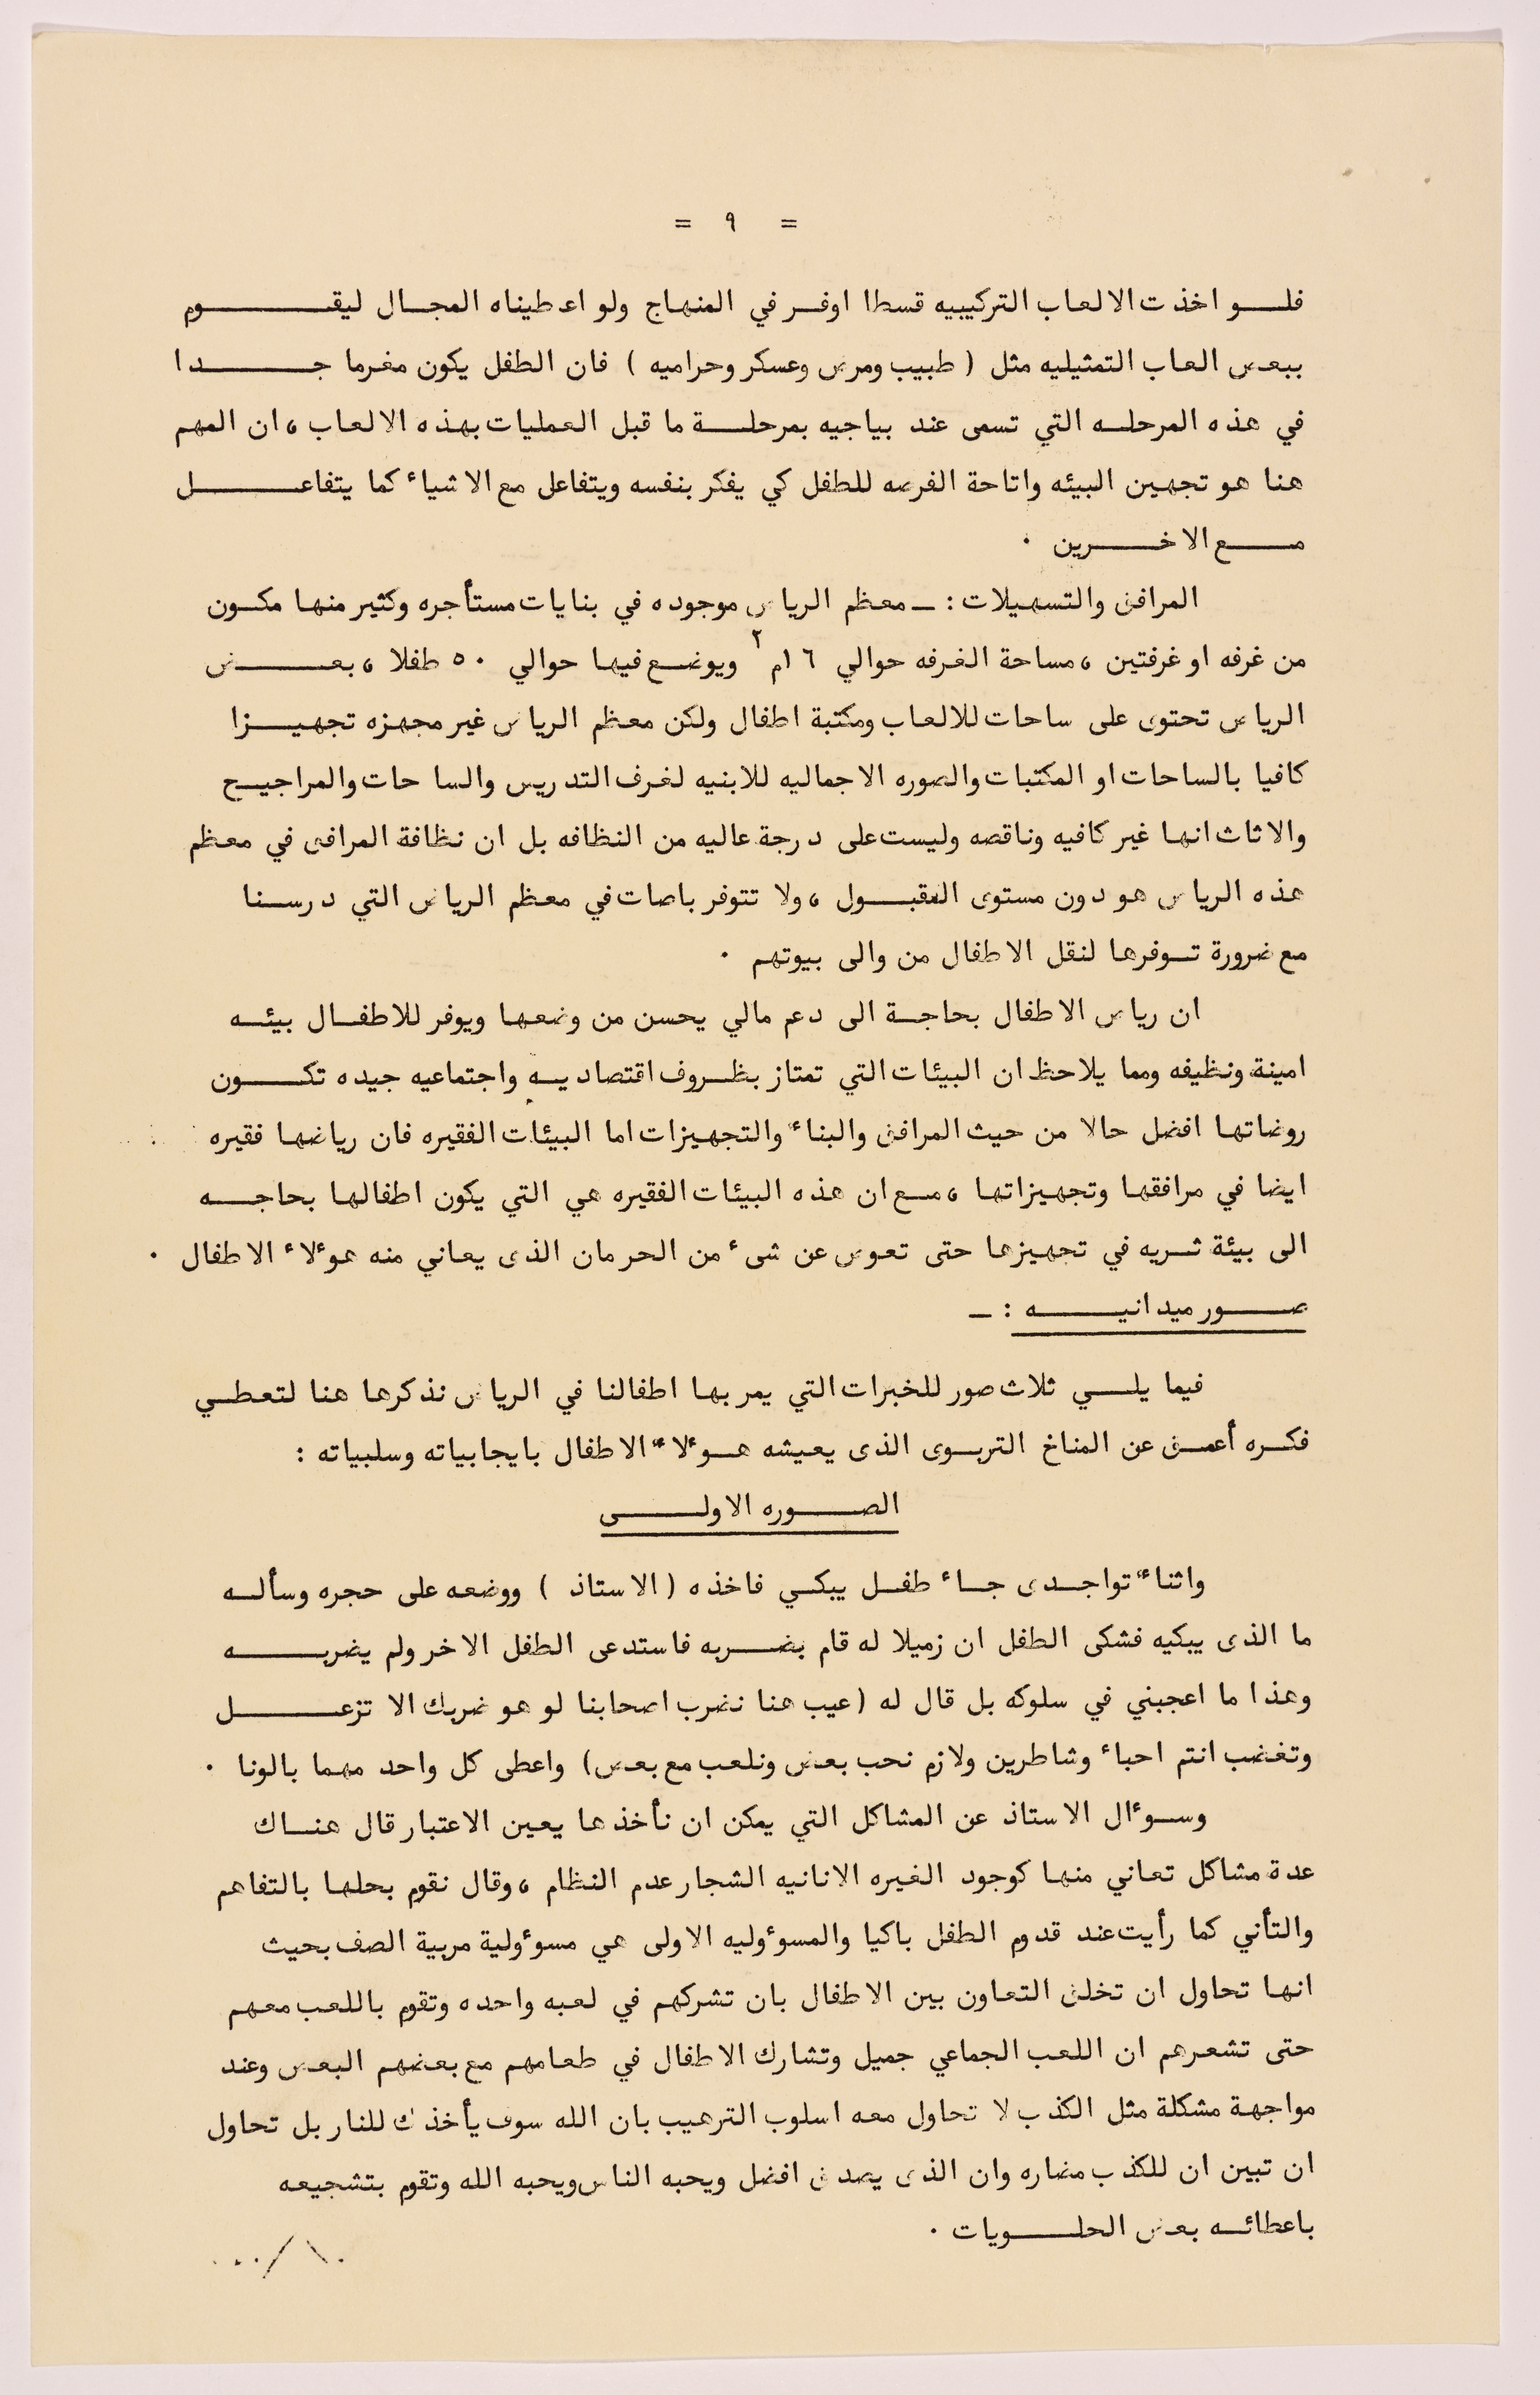 = ٩ =
فلو اخذت الالعاب التركيبيه قسطا اوفر في المنهاج ولو اعطيناه المجال ليقوم
ببعض العاب التمثيليه مثل ( طبيب ومرض وعسكر وحراميه ) فان الطفل يكون مغرما جدا
في هذه المرحله التي تسمى عند بياجيه بمرحلة ما قبل العمليات بهذه الالعاب ، ان المهم
هنا هو تجهين البيئه واتاحة الفرصه للطفل كي يفكر بنفسه ويتفاعل مع الاشياء كما يتفاعل
مع الاخرين ٠
المرافق والتسهيلات : ـ معظم الرياض موجوده في بنايات مستأجره وكثير منها مكون
من غرفه او غرفتين ، مساحة الغرفه حوالي ١٦م٢ ويوضع فيها حوالي ٥٠ طفلا ، بعض
الرياض تحتوى على ساحات للالعاب ومكتبة اطفال ولكن معظم الرياض غير مجهزه تجهيزا
كافيا بالساحات او المكتبات والصوره الاجماليه للابنيه لغرف التدريس والساحات والمراجيح
والاثاث انها غير كافيه وناقصه وليست على درجة عاليه من النظافه بل ان نظافة المرافق في معظم
هذه الرياض هو دون مستوى المقبول ، ولا تتوفر باصات في معظم الرياض التي درسنا
مع ضرورة توفرها لنقل الاطفال من والى بيوتهم ٠
ان رياض الاطفال بحاجة الى دعم مالي يحسن من وضعها ويوفر للاطفال بيئه
امينة ونظيفه ومما يلاحظ ان البيئات التي تمتاز بظروف اقتصاديه واجتماعيه جيده تكون
روضاتها افضل حالا من حيث المرافق والبناء والتجهيزات اما البيئات الفقيره فان رياضها فقيره
ايضا في مرافقها وتجهيزاتها ، مع ان هذه البيئات الفقيره هي التي يكون اطفالها بحاجه
الى بيئة ثريه في تجهيزها حتى تعوض عن شىء من الحرمان الذى يعاني منه هؤلاء الاطفال ٠
صور ميدانيه : ـ
فيما يلي ثلاث صور للخبرات التي يمر بها اطفالنا في الرياض نذكرها هنا لتعطي
فكره أعمق عن المناخ التربوى الذى يعيشه هؤلاء الاطفال بايجابياته وسلبياته :
الصوره الاولى
واثناء تواجدى جاء طفل يبكي فاخذه ( الاستاذ ) ووضعه على حجره وسأله
ما الذى يبكيه فشكى الطفل ان زميلا له قام بضربه فاستدعى الطفل الاخر ولم يضربه
وهذا ما اعجبني في سلوكه بل قال له ( عيب هنا نضرب اصحابنا لو هو ضربك الا تزعل
وتغضب انتم احباء وشاطرين ولازم نحب بعض ونلعب مع بعض) واعطى كل واحد مهما بالونا ٠
وسؤال الاستاذ عن المشاكل التي يمكن ان نأخذها يعين الاعتبار قال هناك
عدة مشاكل تعاني منها كوجود الغيره الانانيه الشجار عدم النظام ، وقال نقوم بحلها بالتفاهم
والتأني كما رأيت عند قدوم الطفل باكيا والمسؤوليه الاولى هي مسؤولية مربية الصف بحيث
انها تحاول ان تخلق التعاون بين الاطفال بان تشركهم في لعبه واحده وتقوم باللعب معهم
حتى تشعرهم ان اللعب الجماعي جميل وتشارك الاطفال في طعامهم مع بعضهم البعض وعند
مواجهة مشكلة مثل الكذب لا تحاول معه اسلوب الترهيب بان الله سوف يأخذك للنار بل تحاول
ان تبين ان للكذب مضاره وان الذى يصدق افضل ويحبه الناس ويحبه الله وتقوم بتشجيعه
باعطائه بعض الحلويات ٠
٠٠٠/١٠